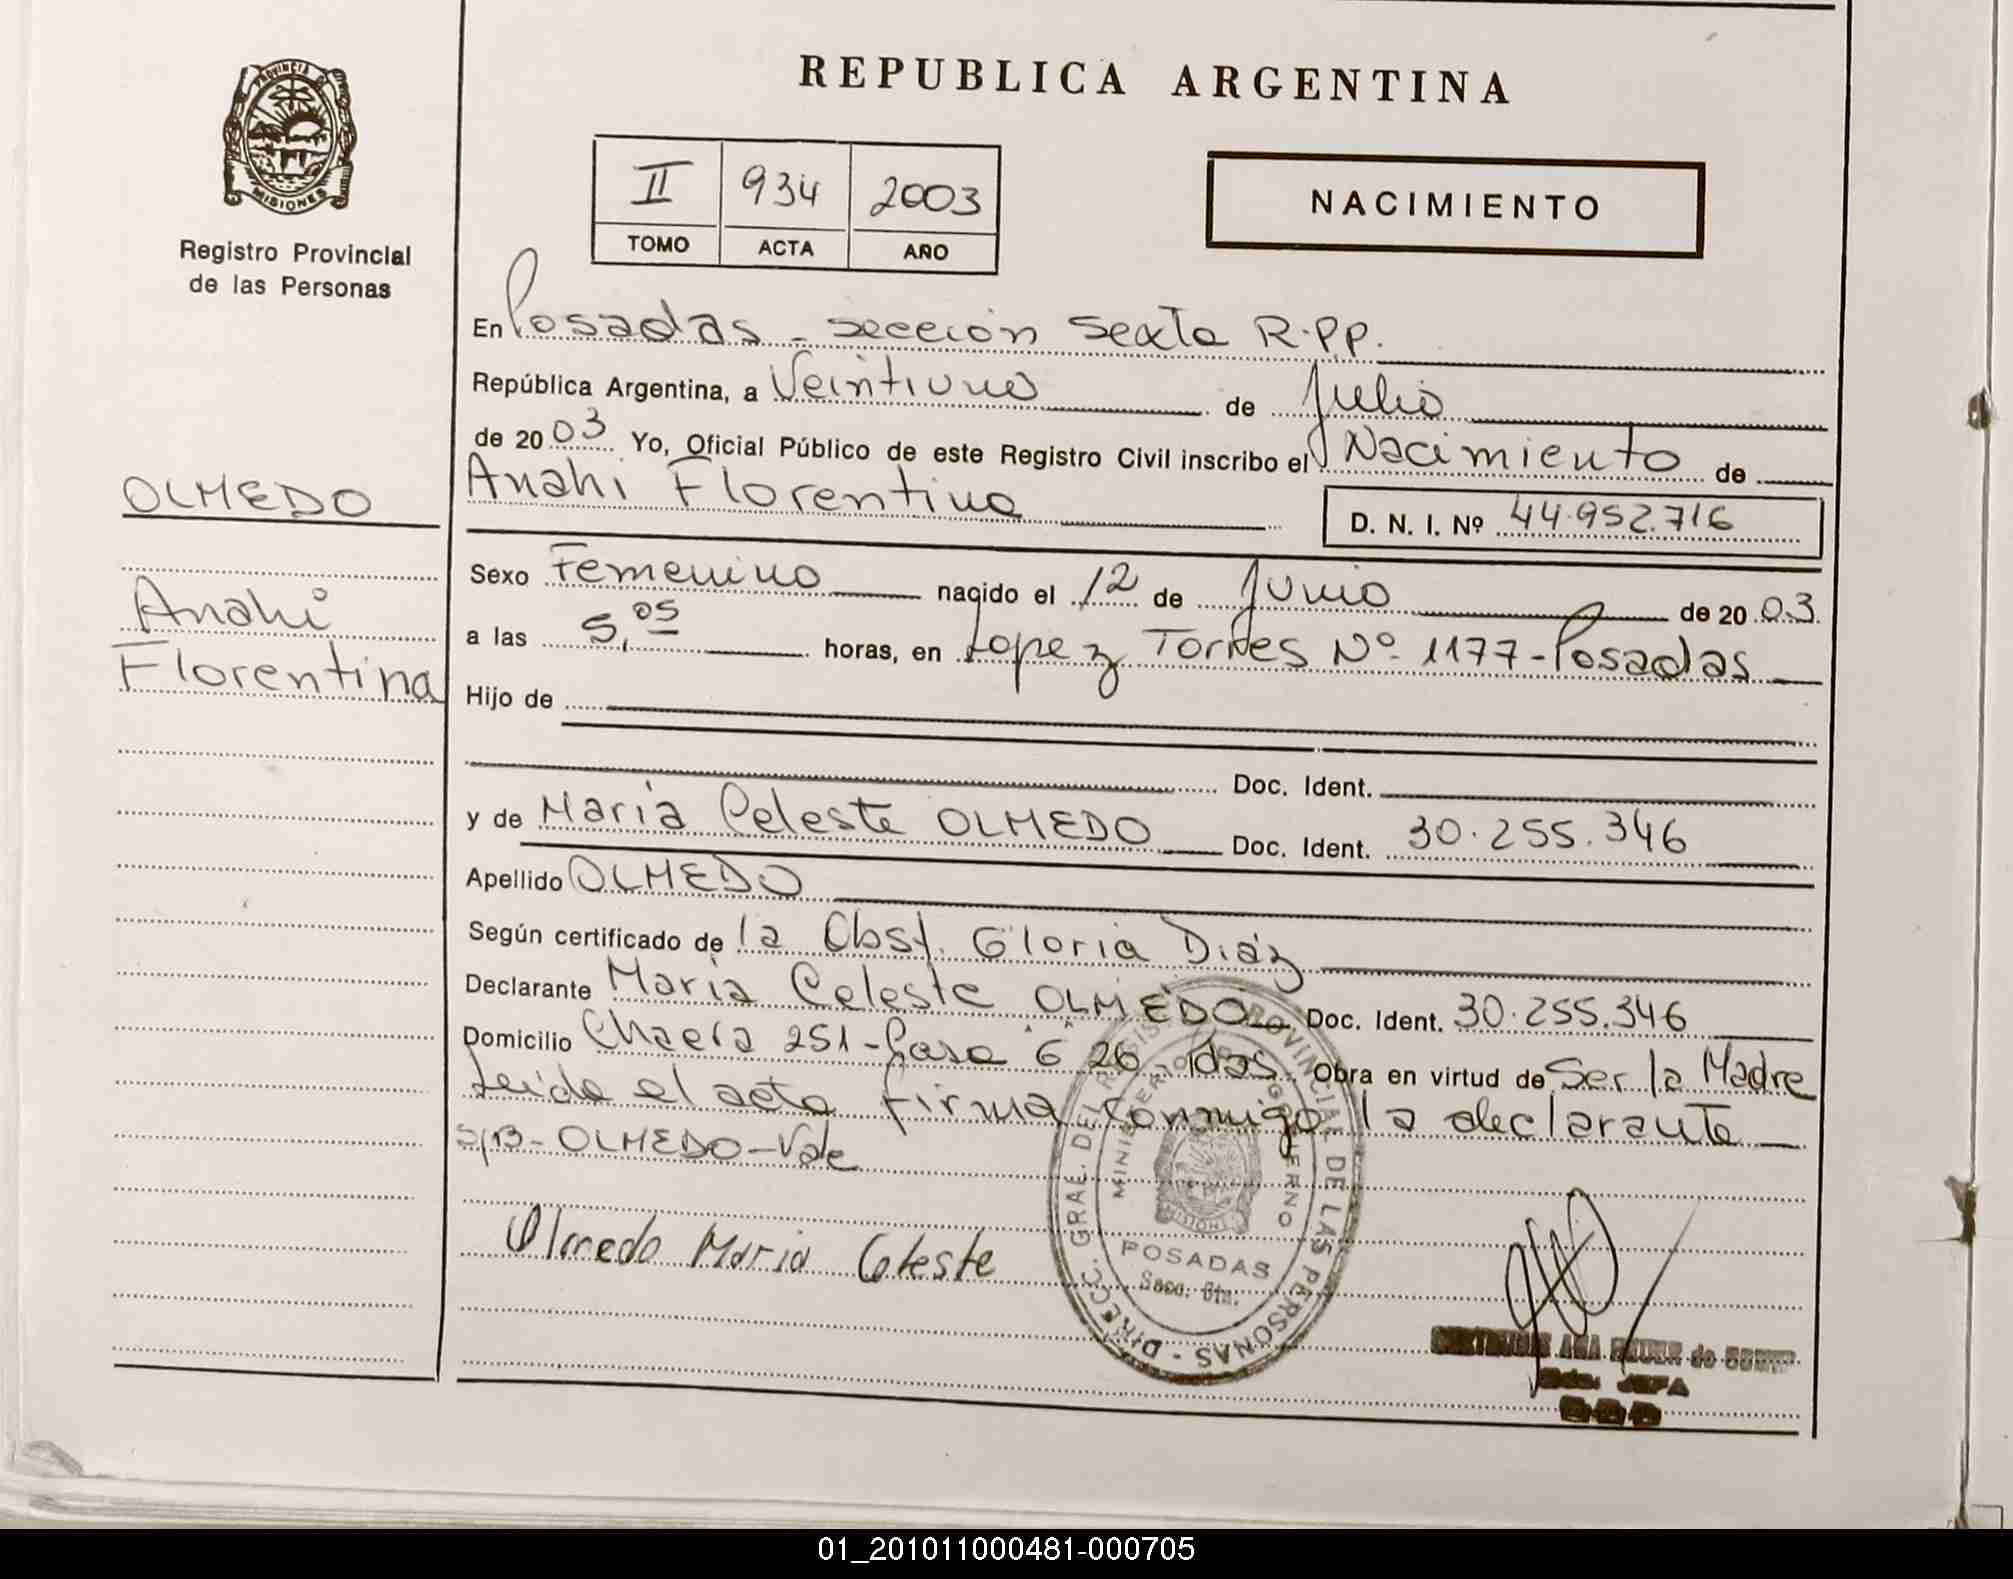 REPUBLICA ARGENTINA
PROVINCIA DE MISIONES
Registro Provincial
de las Personas
II 934 2003
TOMO ACTA AÑO
NACIMIENTO
En Posadas - sección Sexta R.P.P.
República Argentina, a Veintiuno de Julio
de 2003 Yo, Oficial Público de este Registro Civil inscribo el Nacimiento de
OLMEDO
Anahi Florentina
D. N. I. Nº 44.952.716
Sexo Femenino nacido el 12 de Junio de 2003
Anahi
Florentina
a las 5,05 horas, en Lopez Torres Nº 1177-Posadas
Hijo de
Doc. Ident.
y de Maria Celeste OLMEDO Doc. Ident. 30.255.346
Apellido OLMEDO
Según certificado de la Obst. Gloria Diaz
Declarante Maria Celeste OLMEDO Doc. Ident. 30.255.346
Domicilio Chacra 251-Casa 6 26 - Pdas Obra en virtud de Ser la Madre
Leida el acta firma conmigo la declarante
S/B - OLMEDO - Vale
Olmedo Maria Celeste
DIRECC. GRAL. DEL REGISTRO PROVINCIAL DE LAS PERSONAS
MINISTERIO DE GOBIERNO
MISIONES
POSADAS
Secc. 6ta.
ANA de
JEFA
01_201011000481-000705